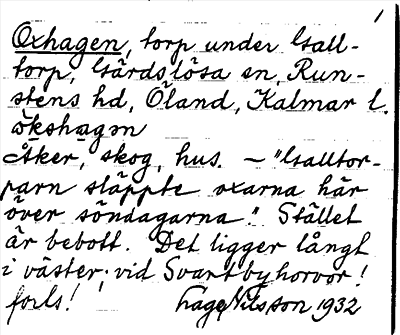 1
Oxhagen, torp under Gall-
torp, Gärdslösa sn, Run-
stens hd, Öland, Kalmar l.
ökshagən
Åker, skog, hus. — "Galltor-
parn släppte oxarna här
över söndagarna." Stället
är bebott. Det ligger långt
i väster; vid Svartbyhorvor!
forts! Hage Nilsson 1932